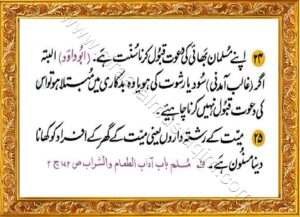 ۲۴ اپنے مسلمان بھائی کی دعوت قبول کرنا سنّت ہے۔ (ابوداؤد) البتہ
اگر (غالب آمدنی) سود یا رشوت کی ہو یا وہ بدکاری میں مبتلا ہو تو اس
کی دعوت قبول نہیں کرنا چاہیے۔
۲۵ میّت کے رشتہ داروں یعنی میّت کے گھر کے افراد کو کھانا
دینا مسنون ہے۔ مسلم باب آداب الطعام والشراب ص ۱۸۲ ج ۲